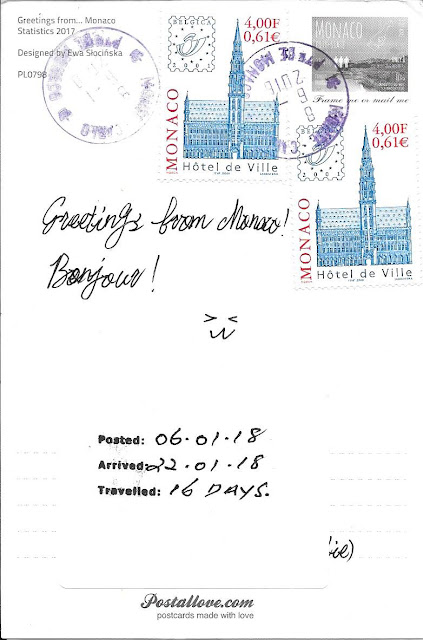 Greetings from... Monaco
Statistics 2017
Designed by Ewa Słocińska
PL0798
4,00F
0,61€
MONACO
Hôtel de Ville
MONACO
Frame me or mail me
4,00F
0,61€
MONACO
Hôtel de Ville
Greetings from Monaco!
Bonjour!
Posted: 06.01.18
Arrived: 22.01.18
Travelled: 16 DAYS.
Postallove.com
postcards made with love